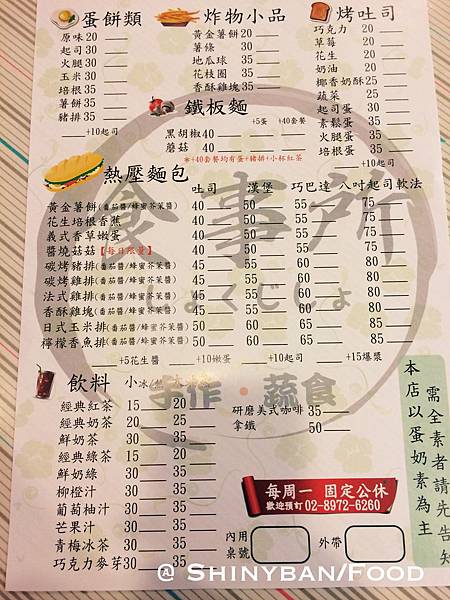 蛋餅類
原味20
起司30
火腿30
玉米30
培根35
薯餅35
豬排35
+10起司
炸物小品
黃金薯餅20
薯條 30
地瓜球 35
花枝圈 35
香酥雞塊35
鐵板麵
+5蛋 +40套餐
黑胡椒40
蘑菇 40
*+40套餐均有蛋+豬排+小杯紅茶
烤吐司
巧克力 20
草莓 20
花生 20
奶油 20
椰香奶酥25
蔬菜 25
起司蛋 30
素鬆蛋 35
火腿蛋 35
培根蛋 35
+10起司
熱壓麵包 吐司 漢堡 巧巴達 八吋起司軟法
黃金薯餅(番茄醬/蜂蜜芥茉醬) 40 50 55 75
花生培根香蕉 40 50 55 75
義式香草嫩蛋 40 50 55 75
醬燒菇菇【每日限量】 40 50 55 75
碳烤豬排(番茄醬/蜂蜜芥茉醬) 45 55 60 80
碳烤雞排(番茄醬/蜂蜜芥茉醬) 45 55 60 80
法式雞排(番茄醬/蜂蜜芥茉醬) 45 55 60 80
香酥雞塊(番茄醬/蜂蜜芥茉醬) 45 55 60 80
日式玉米排(番茄醬/蜂蜜芥茉醬) 50 60 65 85
檸檬香魚排(番茄醬/蜂蜜芥茉醬) 50 60 65 85
+5花生醬 +10嫩蛋 +10起司 +15爆漿
食事所
しょくじしょ
手作・蔬食
飲料 小冰
經典紅茶 15 20
經典奶茶 20 25
鮮奶茶 30 35
經典綠茶 15 20
鮮奶綠 30 35
柳橙汁 30 35
葡萄柚汁 30 35
芒果汁 30 35
青梅冰茶 30 35
巧克力麥芽30 35
研磨美式咖啡 35
拿鐵 50
每周一 固定公休
歡迎預訂 02-8972-6260
內用
桌號
外帶
本店以蛋奶素為主
需全素者請先告知
@ Shinyban/Food